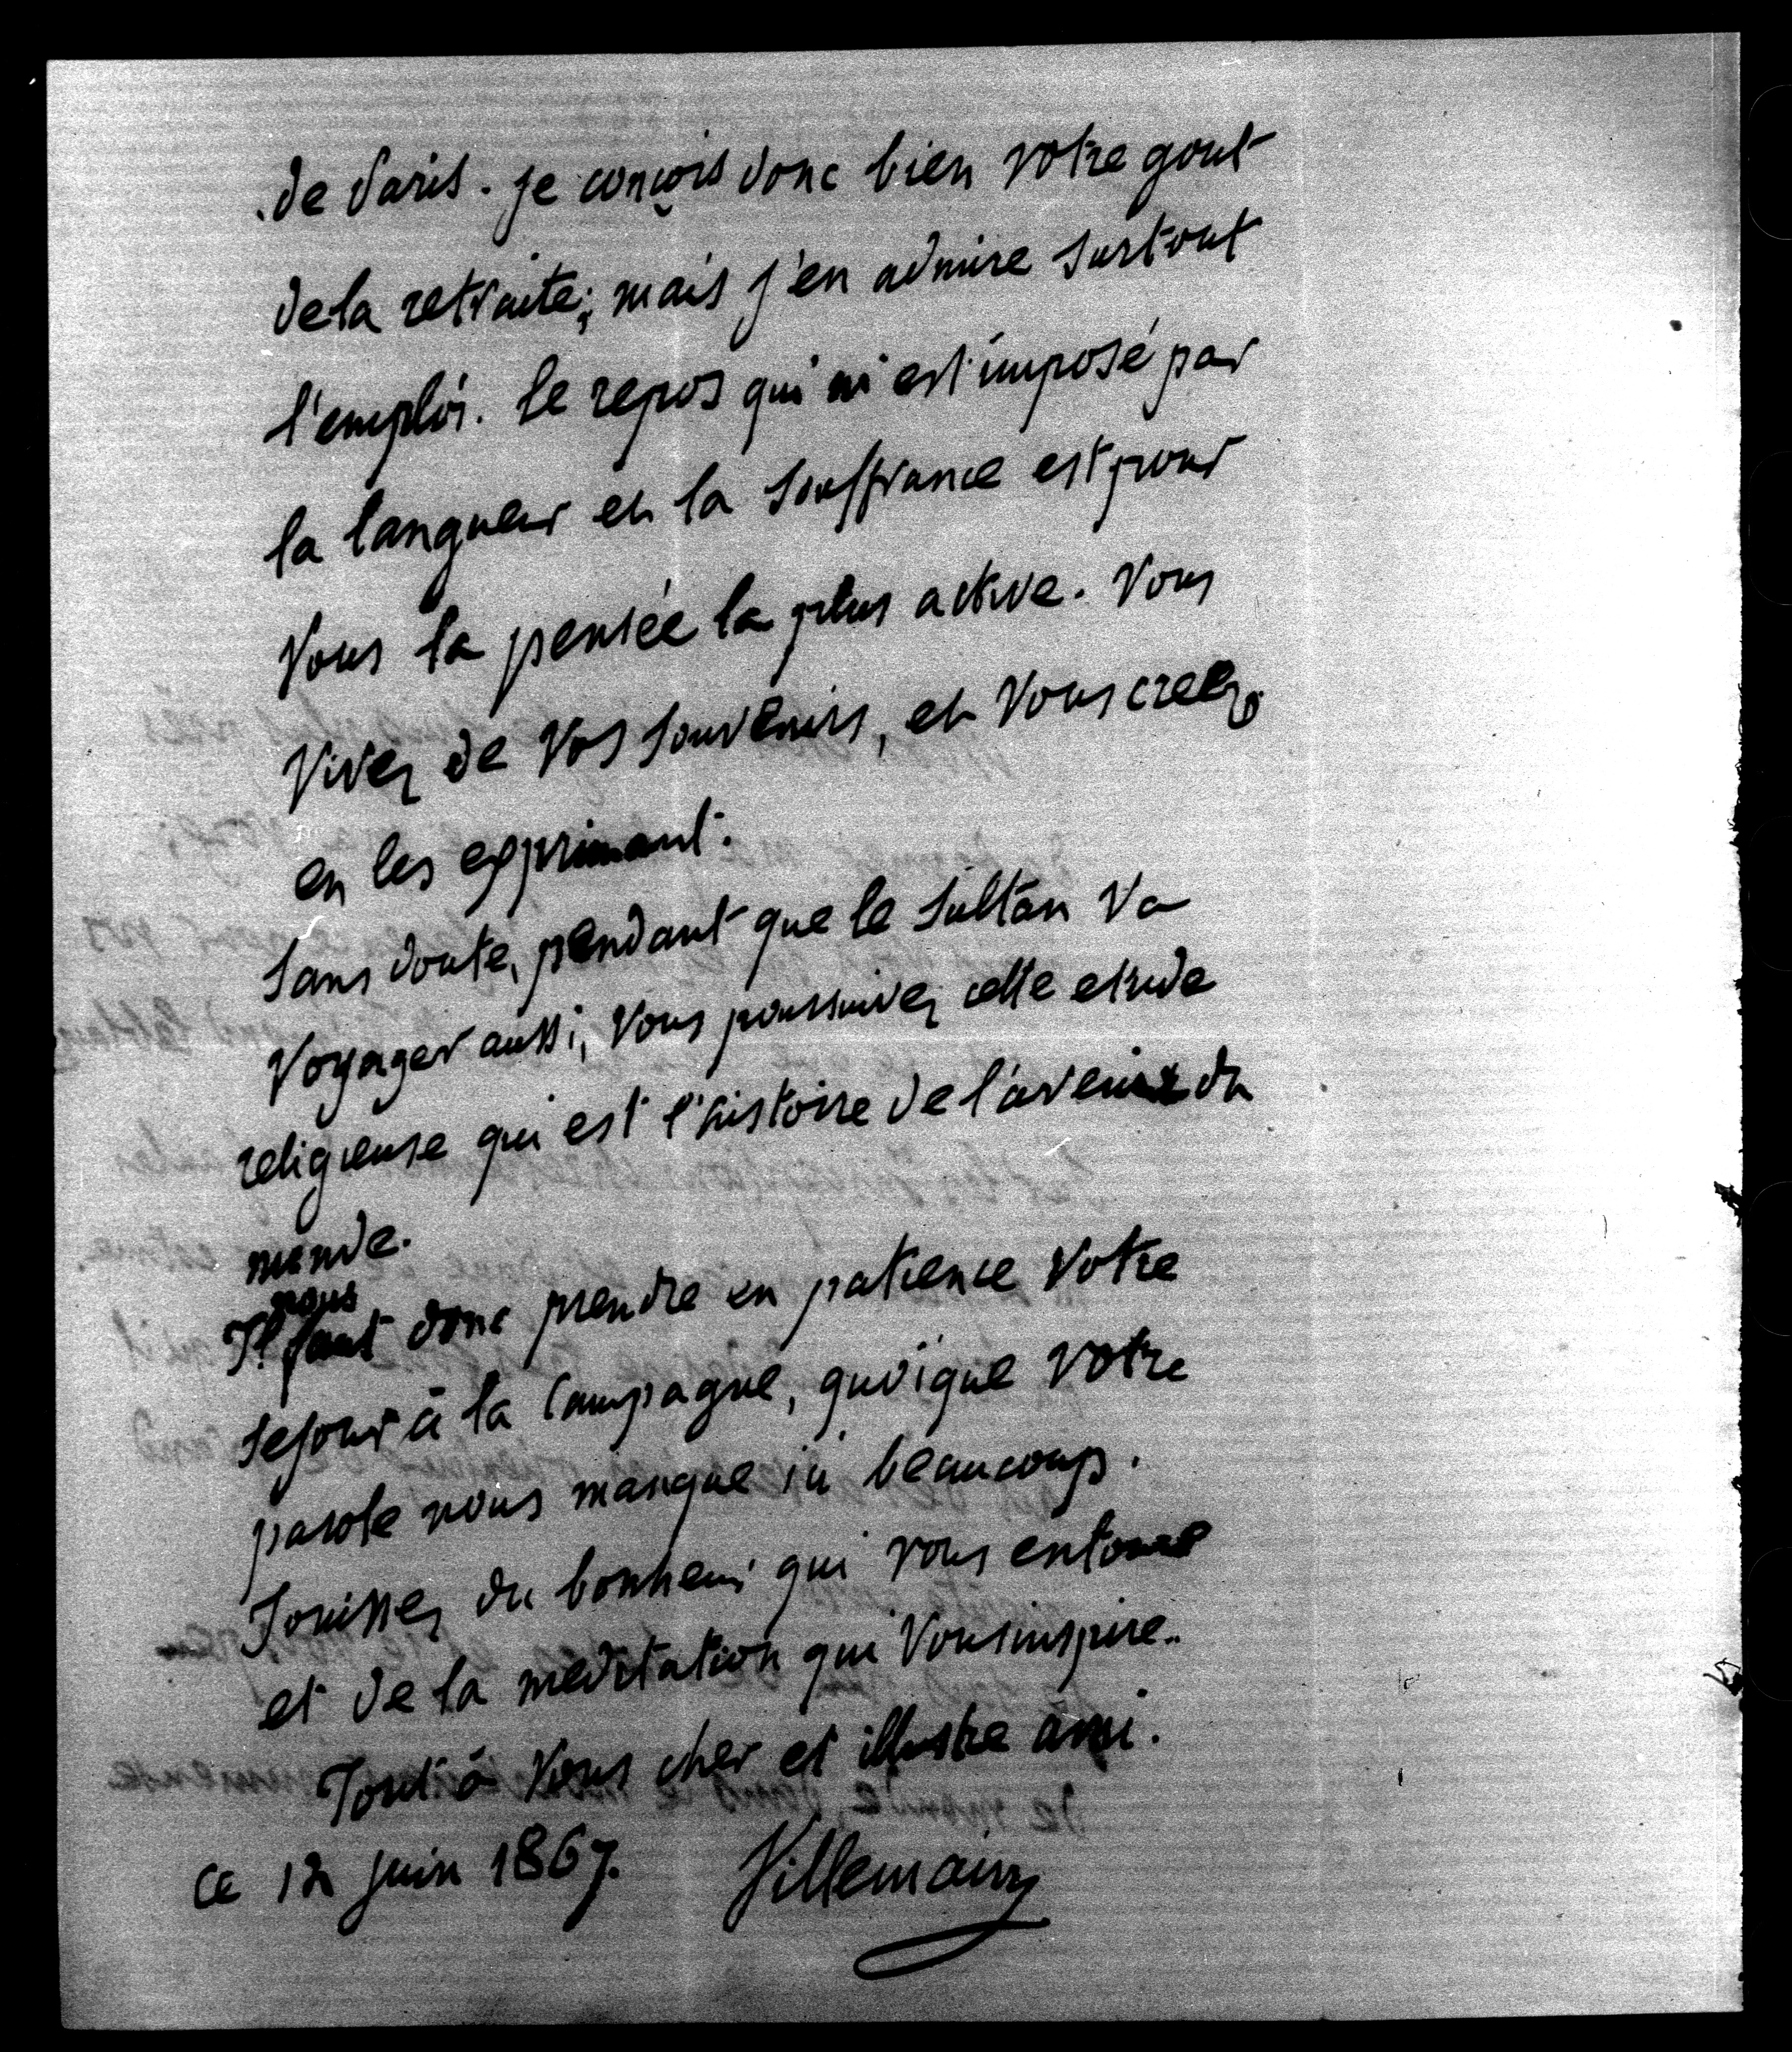 de Paris. je conçois donc bien votre gout
de la retraite; mais j'en admire surtout
l'emploi. le repos qui m'est imposé par
la langueur et la souffrance est pour
Vous la pensée la plus active. Vous
Vivez de Vos souvenirs, et Vous creez
en les exprimant.
Sans doute, pendant que le Sultan Va
Voyager aussi, Vous poursuivez cette etude
religieuse qui est l'histoire de l'avenir du
monde.
nous
Il faut donc prendre en patience Votre
sejour à la Campagne, quoique Votre
parole nous manque ici beaucoup.
Jouissez du bonheur qui vous entoure
et de la meditation qui Vous inspire.
Tout à Vous cher et illustre ami.
Ce 12 juin 1867. Villemain